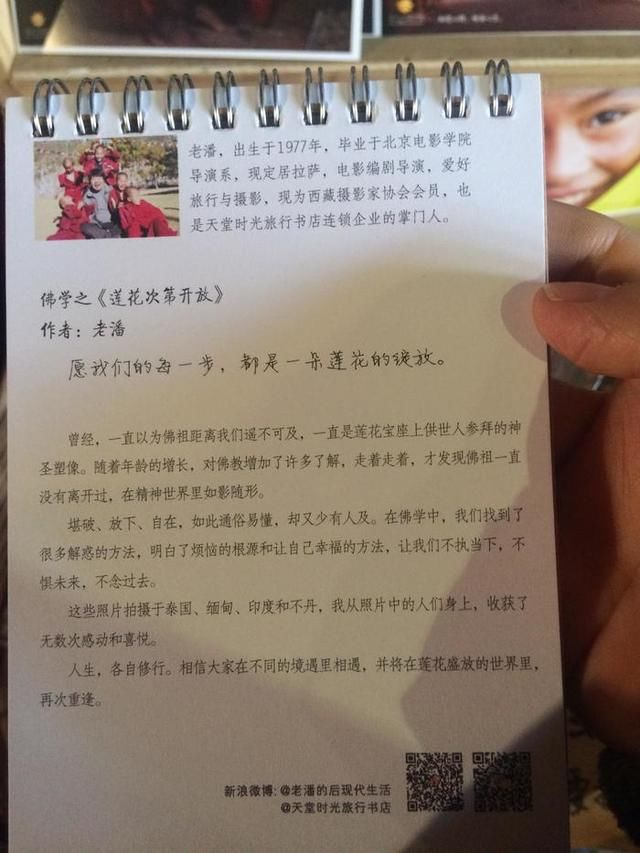 老潘，出生于1977年，毕业于北京电影学院
导演系，现定居拉萨，电影编剧导演，爱好
旅行与摄影，现为西藏摄影家协会会员，也
是天堂时光旅行书店连锁企业的掌门人。
佛学之《莲花次第开放》
作者：老潘
愿我们的每一步，都是一朵莲花的绽放。
曾经，一直以为佛祖距离我们遥不可及，一直是莲花宝座上供世人参拜的神
圣塑像。随着年龄的增长，对佛教增加了许多了解，走着走着，才发现佛祖一直
没有离开过，在精神世界里如影随形。
堪破、放下、自在，如此通俗易懂，却又少有人及。在佛学中，我们找到了
很多解惑的方法，明白了烦恼的根源和让自己幸福的方法，让我们不执当下，不
惧未来，不念过去。
这些照片拍摄于泰国、缅甸、印度和不丹，我从照片中的人们身上，收获了
无数次感动和喜悦。
人生，各自修行。相信大家在不同的境遇里相遇，并将在莲花盛放的世界里，
再次重逢。
新浪微博：@老潘的后现代生活
@天堂时光旅行书店